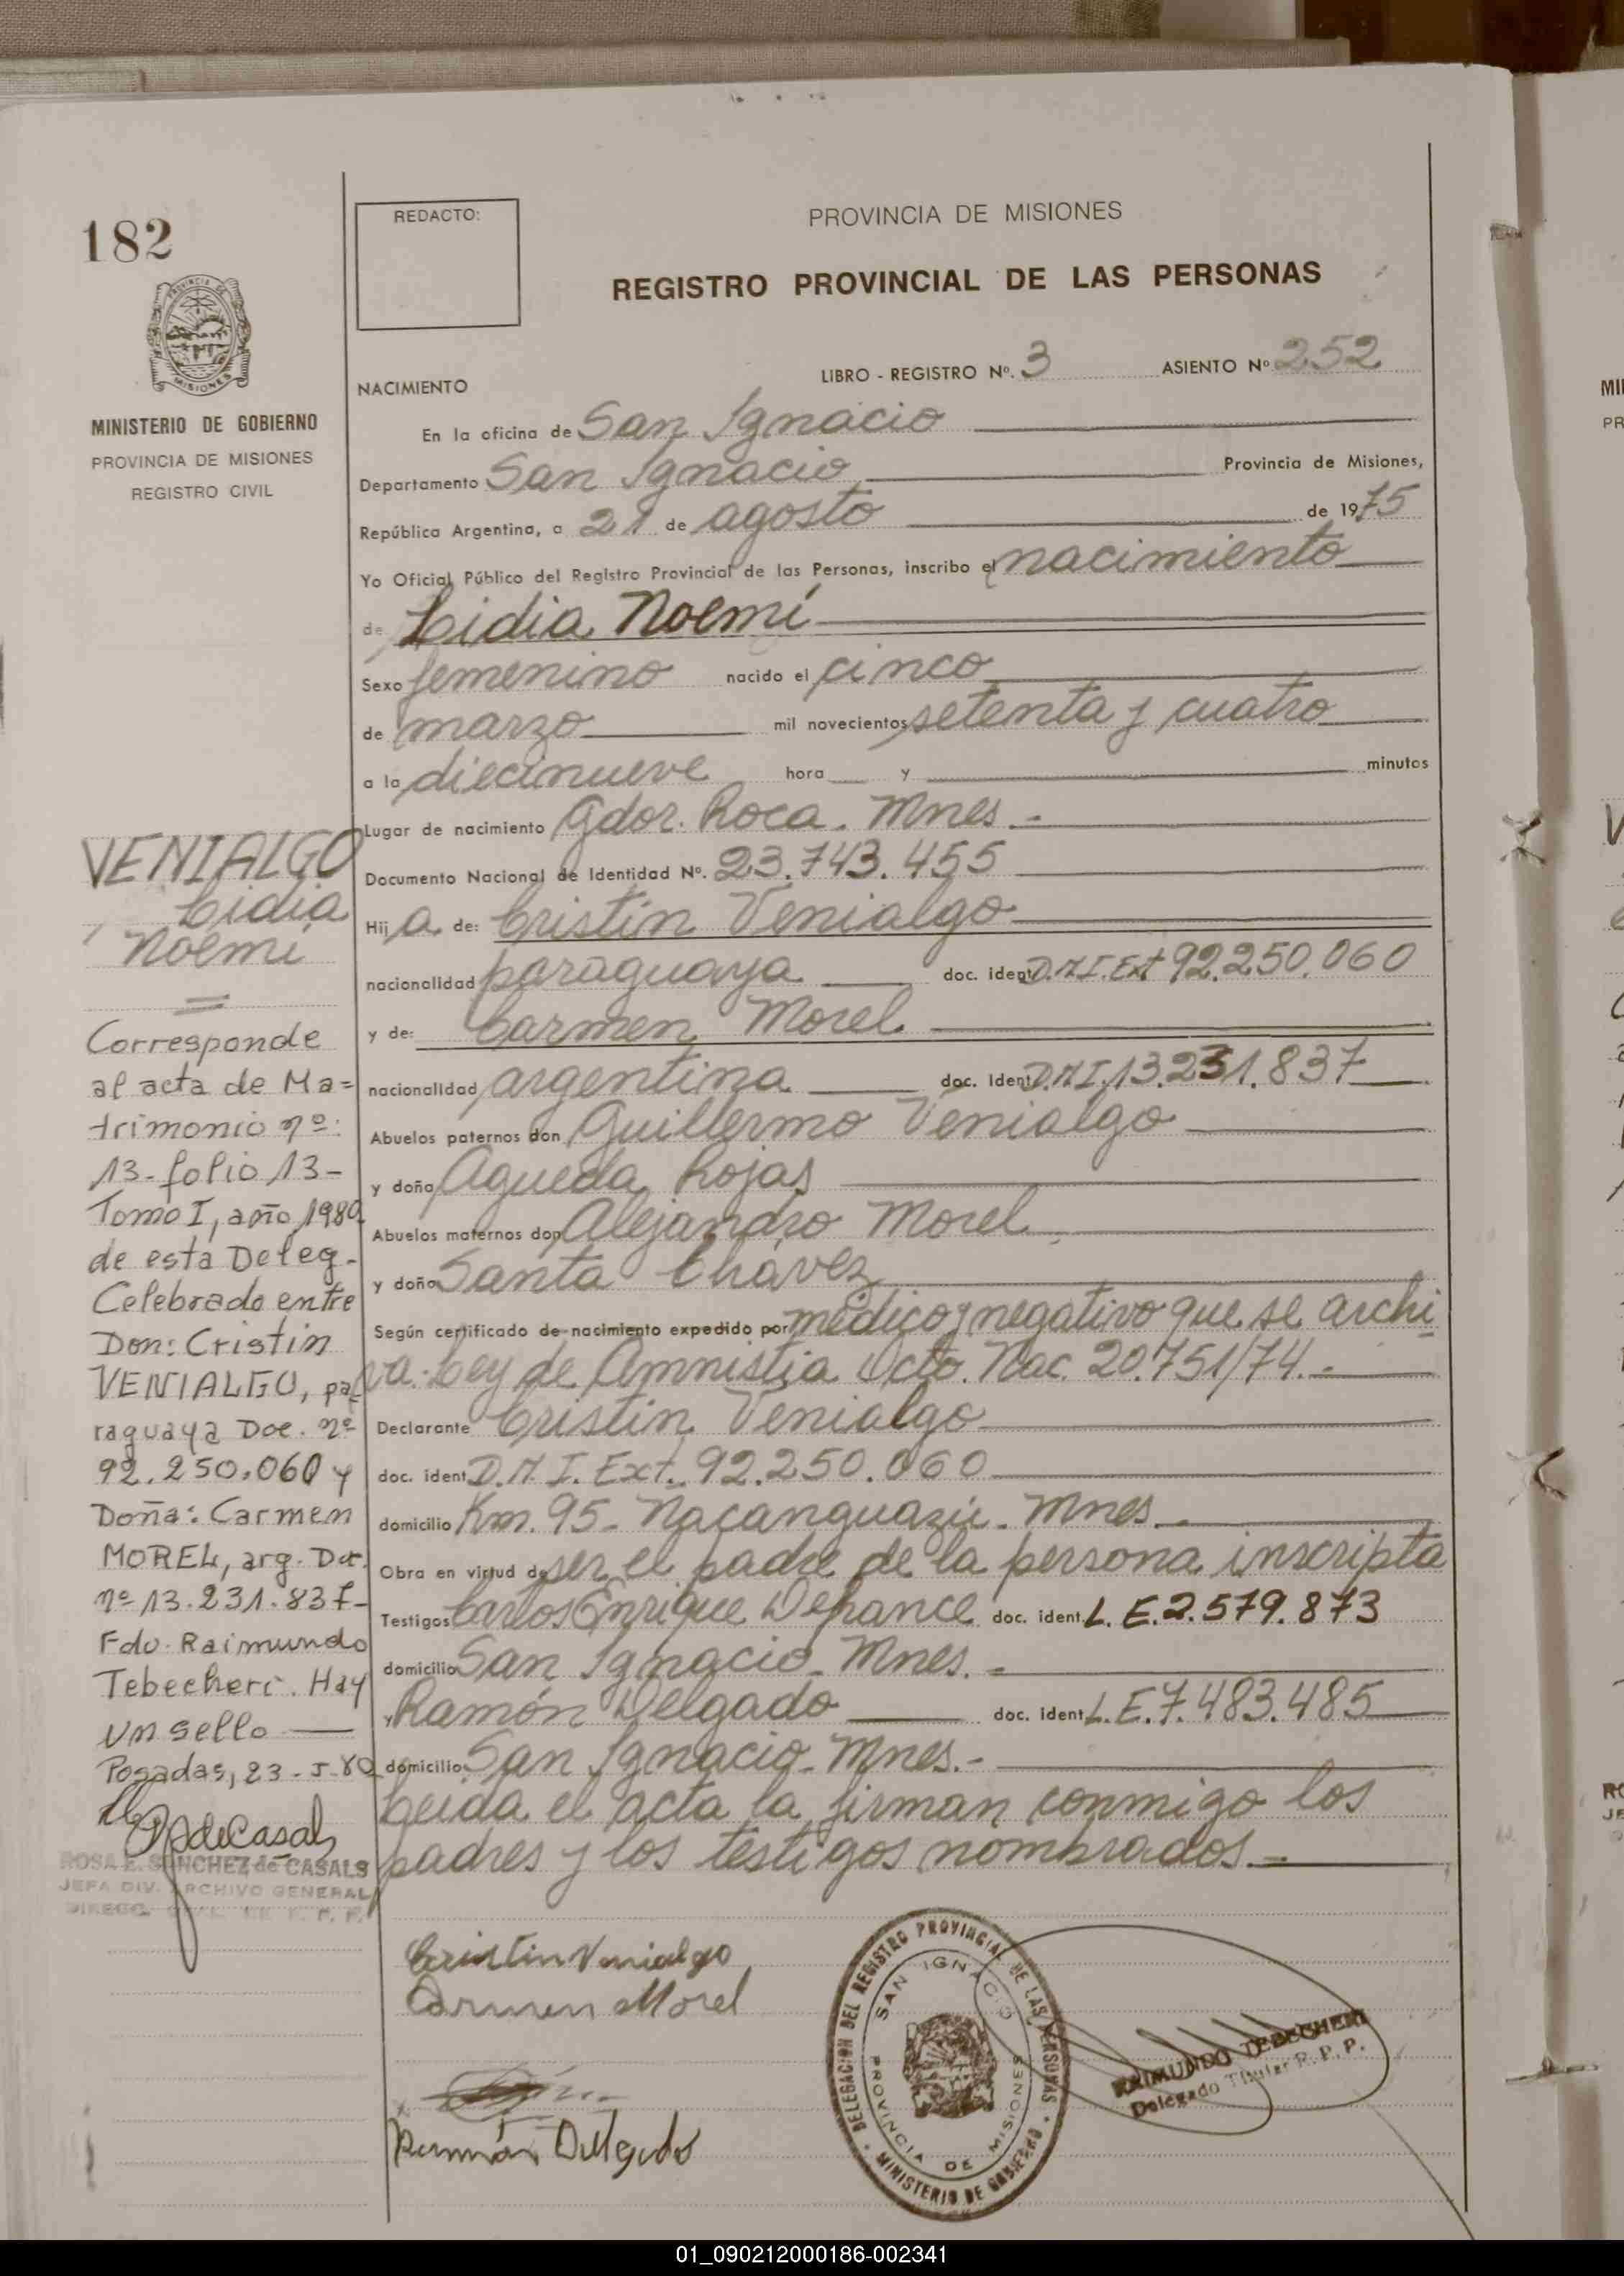 182
REDACTO:
PROVINCIA DE MISIONES
REGISTRO PROVINCIAL DE LAS PERSONAS
MISIONES
MINISTERIO DE GOBIERNO
PROVINCIA DE MISIONES
REGISTRO CIVIL
NACIMIENTO
LIBRO - REGISTRO Nº. 3 ASIENTO Nº 252
En la oficina de San Ignacio
Departamento San Ignacio Provincia de Misiones,
República Argentina, a 21 de agosto de 1975
Yo Oficial Público del Registro Provincial de las Personas, inscribo el nacimiento
de Lidia Noemí
Sexo femenino nacido el cinco
de marzo mil novecientos setenta y cuatro
a la diecinueve hora y minutos
Lugar de nacimiento Gdor. Roca. Mnes.-
Documento Nacional de Identidad Nº. 23.743.455
Hij a de: Cristin Venialgo
nacionalidad paraguaya doc. ident D.N.I. Ext 92.250.060
y de: Carmen Morel
nacionalidad argentina doc. ident D.N.I. 13.231.837
Abuelos paternos don Guillermo Venialgo
y doña Agueda Rojas
Abuelos maternos don Alejandro Morel
y doña Santa Chávez
Según certificado de nacimiento expedido por médico y negativo que se archi
va. Ley de Amnistia Dcto. Nac. 20.751/74.-
Declarante Cristin Venialgo
doc. ident D.N.I. Ext. 92.250.060
domicilio Km. 95- Ñacanguazú. Mnes.-
Obra en virtud de ser el padre de la persona inscripta
Testigos Carlos Enrique Defrance doc. ident. L.E. 2.579.873
domicilio San Ignacio- Mnes.-
y Ramón Delgado doc. ident L.E. 7.483.485
domicilio San Ignacio- Mnes.-
Leida el acta la firman conmigo los
padres y los testigos nombrados.-
VENIALGO
Lidia
Noemi
Corresponde
al acta de Ma=
trimonio nº:
13- folio 13-
Tomo I, año 1980
de esta Deleg-
Celebrado entre
Don: Cristin
VENIALGO, pa-
raguaya Doc. nº
92.250.060 y
Doña: Carmen
MOREL, arg. Doc.
nº 13.231.837-
Fdo. Raimundo
Tebecheri. Hay
un sello
Posadas, 23-5-80
ROSA E. SANCHEZ de CASALS
JEFA DIV. ARCHIVO GENERAL
Cristin Venialgo
Carmen Morel
Ramón Delgado
DELEGACION DEL REGISTRO PROVINCIAL DE LAS PERSONAS
SAN IGNACIO
PROVINCIA DE MISIONES
MINISTERIO DE GOBIERNO
RAIMUNDO TEBECHERI
Delegado Titular R. P. P.
01_090212000186-002341